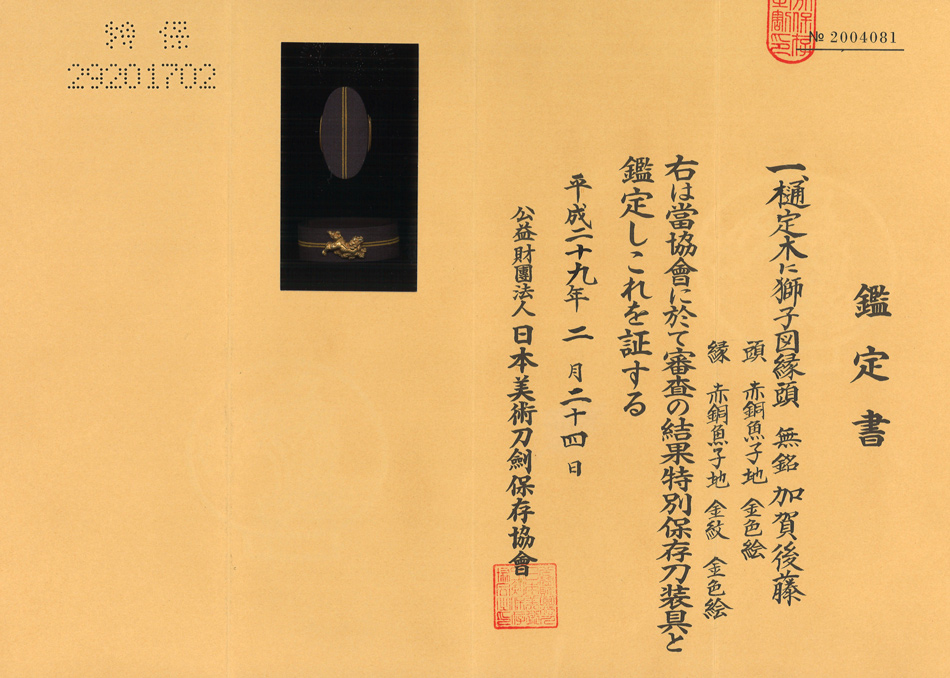 № 2004081
鑑定書
一、樋定木に獅子図縁頭 無銘 加賀後藤
頭 赤銅魚子地 金色絵
縁 赤銅魚子地 金紋 金色絵
右は當協會に於て審査の結果特別保存刀装具と
鑑定しこれを証する
平成二十九年 二 月二十四日
公益財團法人 日本美術刀劍保存協會
特 保
29201702